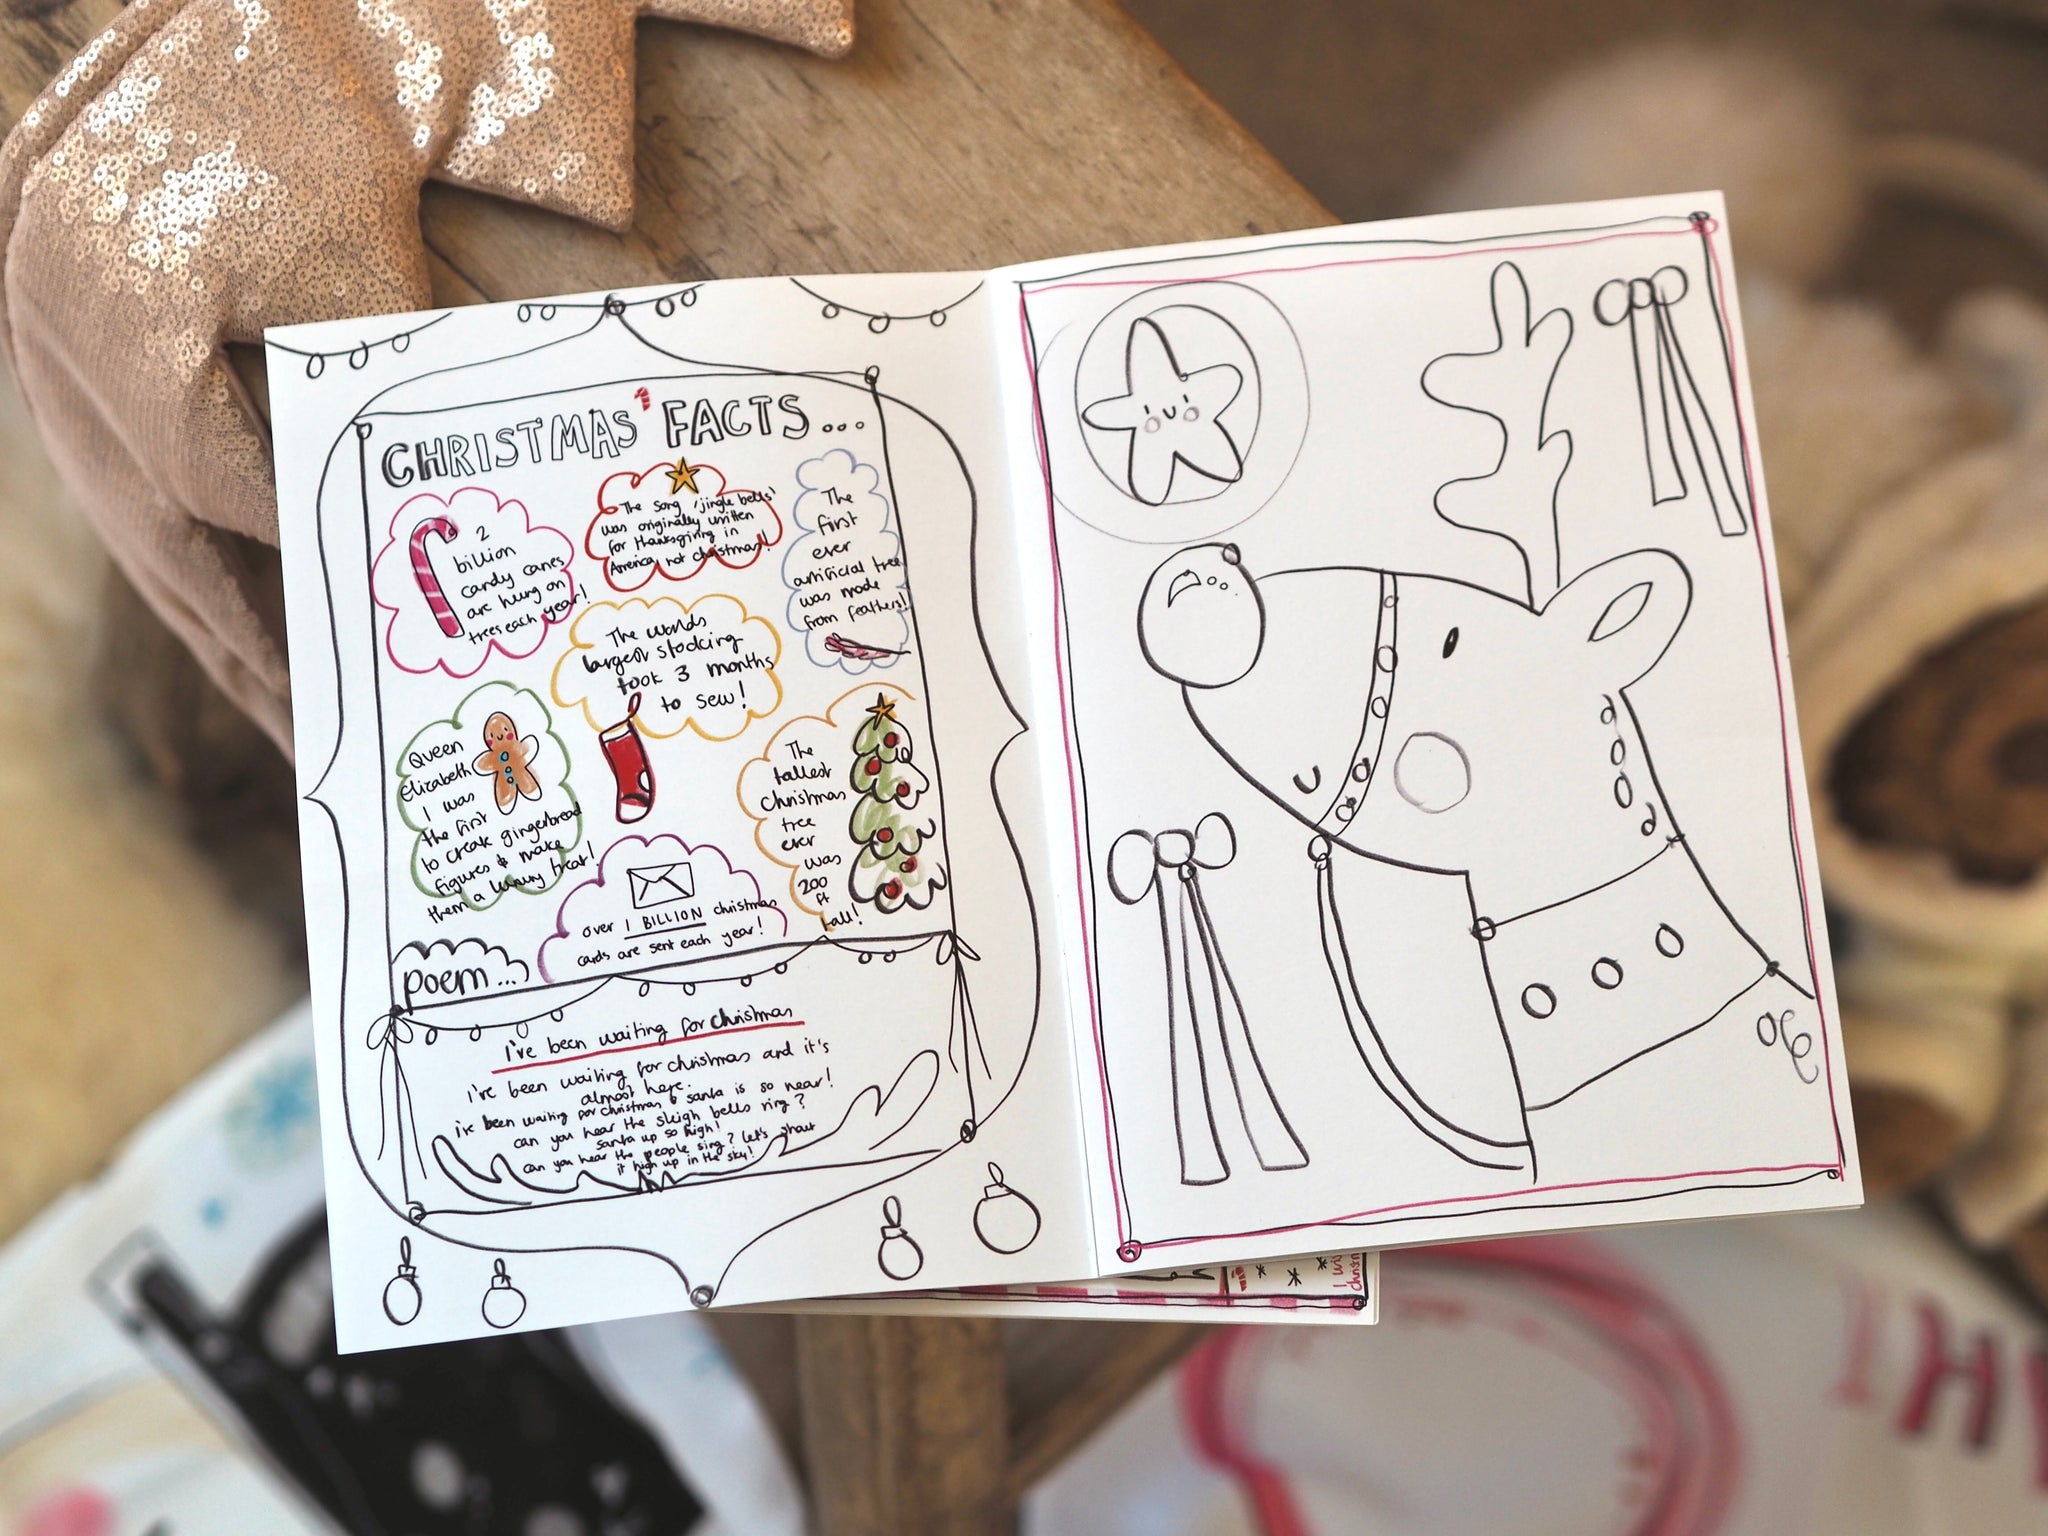 CHRISTMAS' FACTS...
2
billion
candy canes
are hung on
trees each year!
The song 'jingle bells'
was originally written
for thanksgiving in
America, not christmas!
The
first
ever
artificial tree
was made
from feathers!
The worlds
largest stocking
took 3 months
to sew!
Queen
Elizabeth
1 was
the first
to create gingerbread
figures & make
them a luxury treat!
The
tallest
christmas
tree
ever
was
200
ft
tall!
over 1 BILLION christmas
cards are sent each year!
poem...
I've been waiting for christmas
i've been waiting for christmas and it's
almost here.
i've been waiting for christmas & santa is so near!
can you hear the sleigh bells ring?
santa up so high!
can you hear the people sing? let's shout
it high up in the sky!